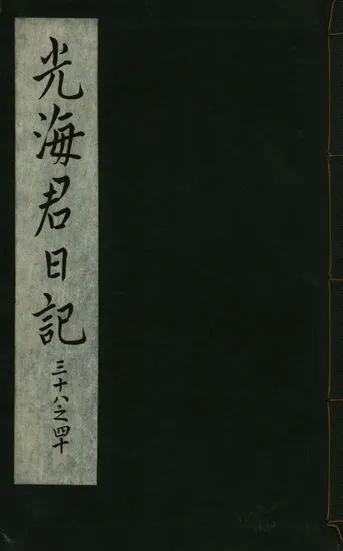 光海君日記
三十八之四十